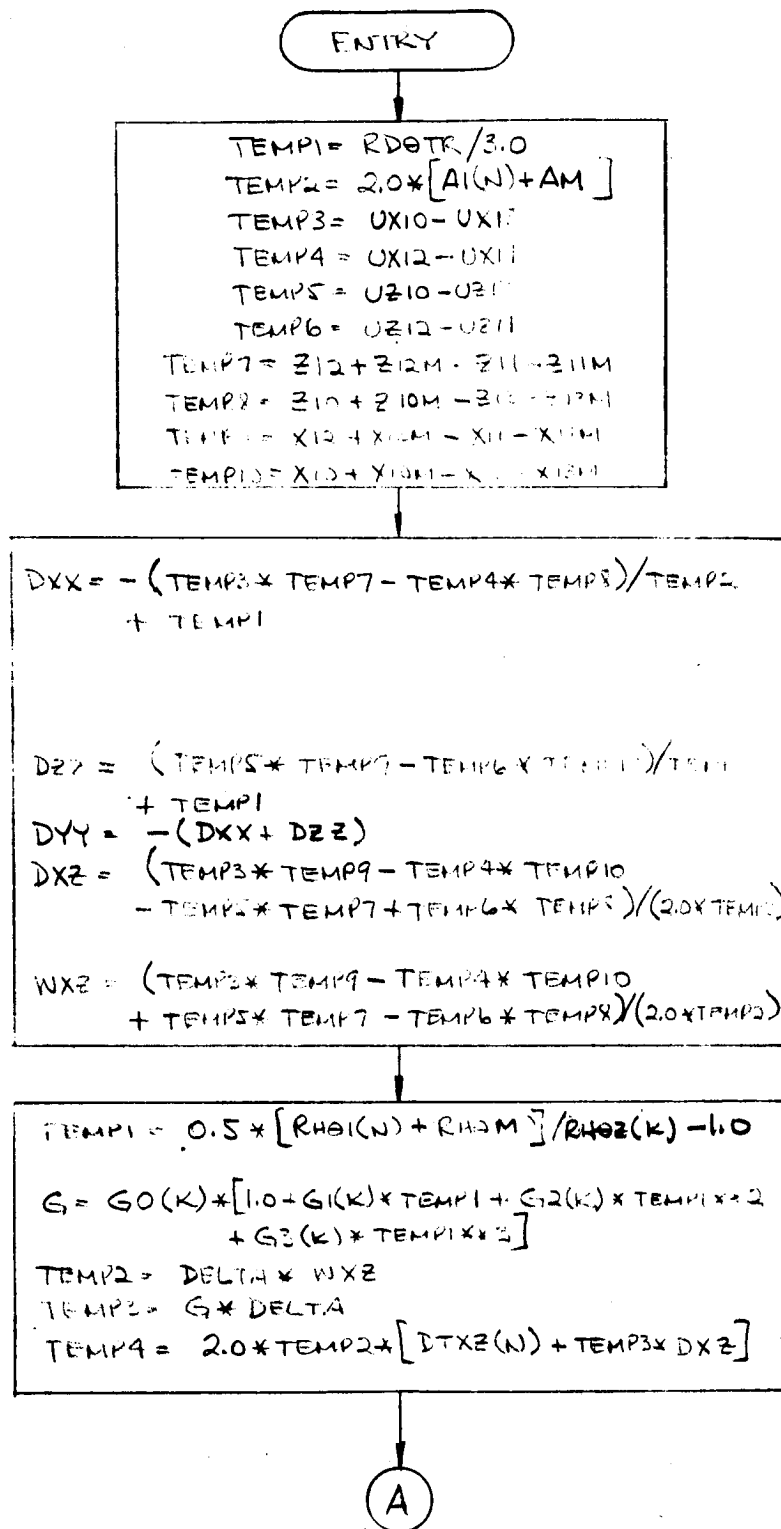 ENTRY
TEMP1= RDOTR/3.0
TEMP2= 2.0*[A1(N)+AM]
TEMP3= UX10-
TEMP4= UX12-UX11
TEMP5= UZ10-
TEMP6= UZ12-UZ11
TEMP7= Z12+Z12M-Z11-Z11M
TEMP8= Z10+Z10M-
= X12+ -X11-
TEMP10= X10+X10M-
DXX= -(TEMP3*TEMP7-TEMP4*TEMP8)/TEMP2
+ TEMP1
DZZ= (TEMP5*TEMP9-TEMP6*
+ TEMP1
DYY= -(DXX+DZZ)
DXZ= (TEMP3*TEMP9-TEMP4*TEMP10
-TEMP5*TEMP7+TEMP6*TEMP8)/(2.0*TEMP2)
WXZ= (TEMP3*TEMP9-TEMP4*TEMP10
+TEMP5*TEMP7-TEMP6*TEMP8)/(2.0*TEMP2)
TEMP1= 0.5*[RHO1(N)+RHOM]/RHOZ(K)-1.0
G= G0(K)*[1.0+G1(K)*TEMP1+G2(K)*TEMP1**2
+G3(K)*TEMP1**3]
TEMP2= DELTA*WXZ
TEMP3= G*DELTA
TEMP4= 2.0*TEMP2*[DTXZ(N)+TEMP3*DXZ]
A